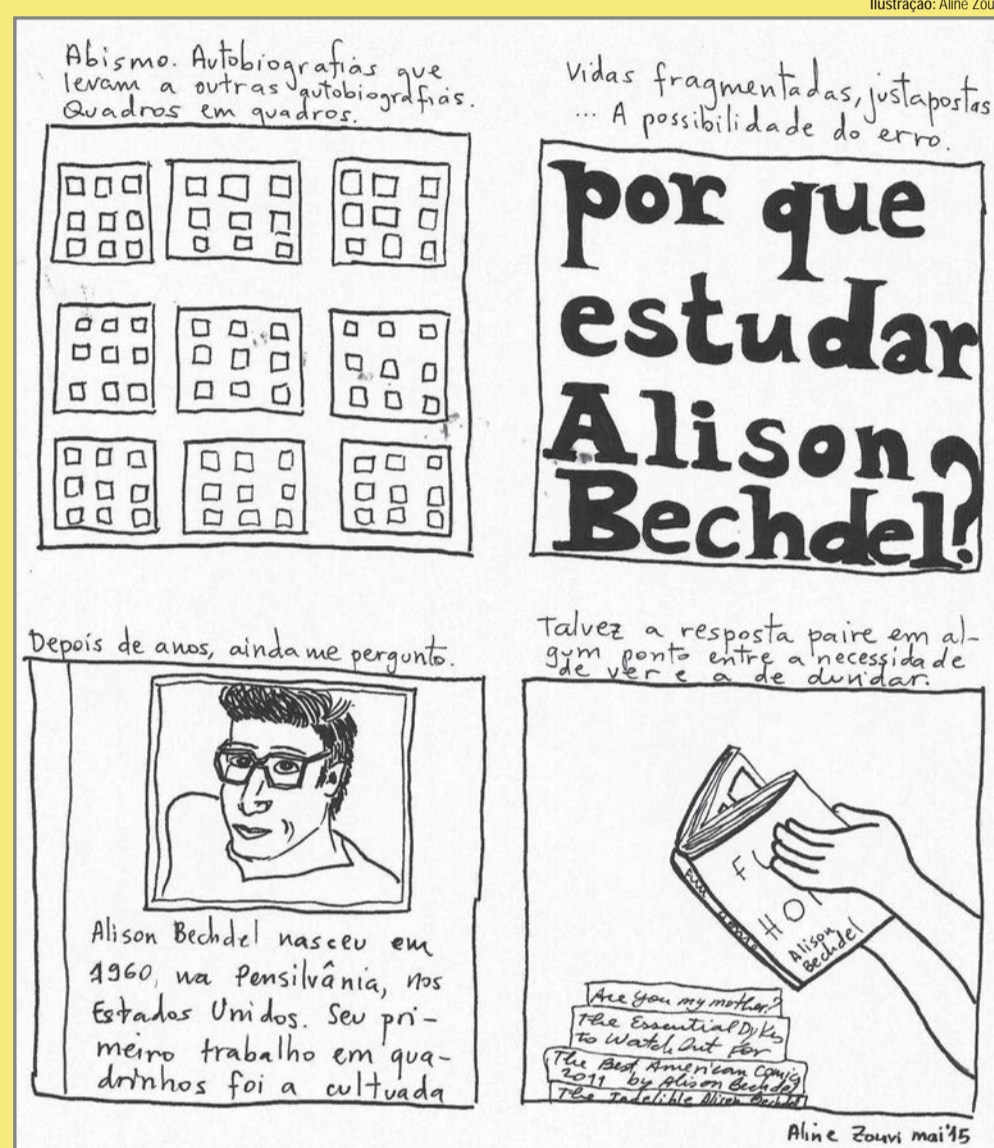 Ilustração: Aline Zou
Abismo. Autobiografias que
levam a outras autobiografias.
Quadros em quadros.
Vidas fragmentadas, justapostas
... A possibilidade do erro.
por que
estudar
Alison
Bechdel?
Depois de anos, ainda me pergunto.
Alison Bechdel nasceu em
1960, na Pensilvânia, nos
Estados Unidos. Seu pri-
meiro trabalho em qua-
drinhos foi a cultuada
Talvez a resposta paire em al-
gum ponto entre a necessidade
de ver e a de duvidar.
FU
HO
Alison
Bechdel
Are you my mother?
The Essential Dykes
to Watch Out For
The Best American Comics
2011 by Alison Bechdel
The Indelible Alison Bechdel
Aline Zouvi mai'15